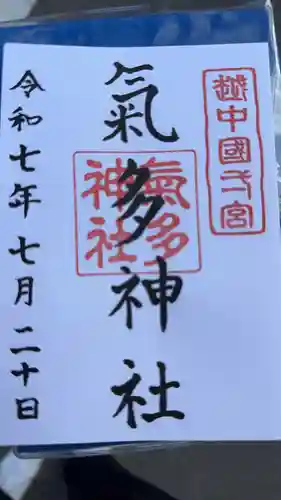 越中國弌宮
氣多神社
氣多
神社
令和七年七月二十日